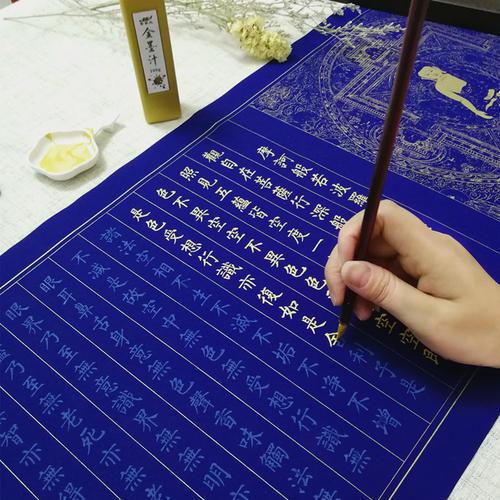 金墨汁
100g
摩訶般若波羅
觀自在菩薩行深般
照見五蘊皆空度一
色不異空空不異色色空空即
是色受想行識亦復如是舍利子是
諸法空相不生不滅不垢不淨不增
不減是故空中無色無受想行識無
眼耳鼻舌身意無色聲香味觸法無
眼界乃至無意識界無無明
盡乃至無老死亦無
智亦無得